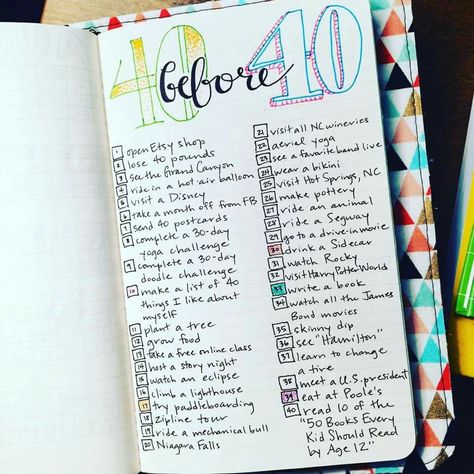 40 before 40
1 open Etsy shop
2 lose 40 pounds
3 see the Grand Canyon
4 ride in a hot-air balloon
5 visit a Disney
6 take a month off from FB
7 send 40 postcards
8 complete a 30-day
yoga challenge
9 complete a 30-day
doodle challenge
10 make a list of 40
things I like about
myself
11 plant a tree
12 grow food
13 take a free online class
14 host a story night
15 watch an eclipse
16 climb a lighthouse
17 try paddleboarding
18 zipline tour
19 ride a mechanical bull
20 Niagara Falls
21 visit all NC wineries
22 aerial yoga
23 see a favorite band live
24 wear a bikini
25 visit Hot Springs, NC
26 make pottery
27 ride an animal
28 ride a Segway
29 go to a drive-in movie
30 drink a Sidecar
31 watch Rocky
32 visit Harry Potter World
33 write a book
34 watch all the James
Bond movies
35 skinny dip
36 see "Hamilton"
37 learn to change
a tire
38 meet a U.S. president
39 eat at Poole's
40 read 10 of the
"50 Books Every
Kid Should Read
by Age 12"